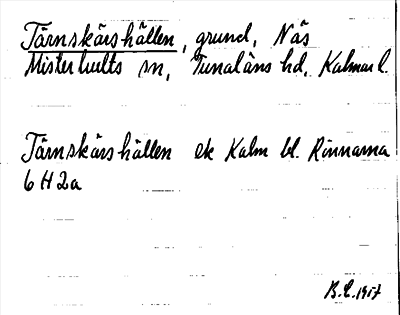 Tärnskärshällen, grund, Näs
Misterhults sn, Tunaläns hd, Kalmar l.
Tärnskärshällen ek Kalm bl. Rinnarna
6 H 2a
B.E. 1957